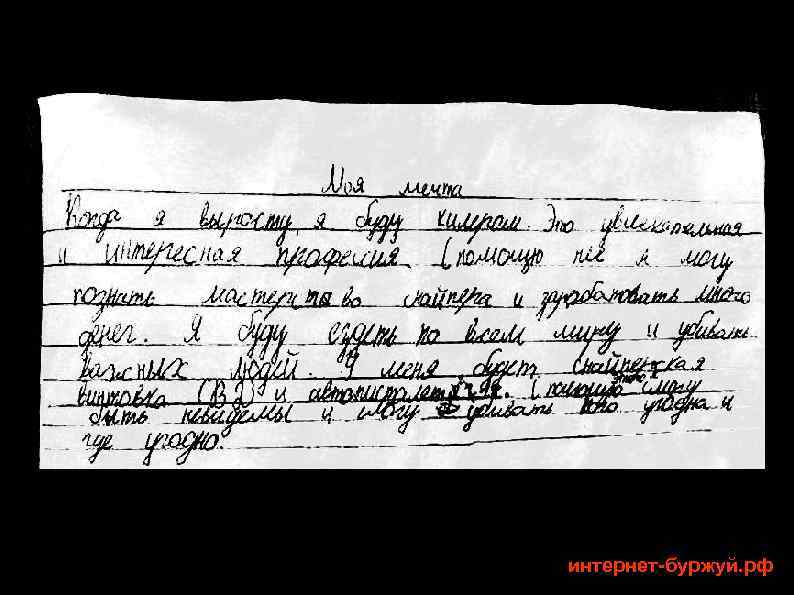 Моя мечта
Когда я вырасту, я буду килером. Это увлекательная
и интересная професия. С помощю неё я могу
познать мастерство снайпера и зарабатовать много
денег. Я буду ездеть по всем миру и убивать
важных людей. У меня будет снайперская
винтовка (В2) и автопистолет. С помощю этого смогу
быть невидемы и смогу убивать кого угодна и
где угодно.
интернет-буржуй.рф